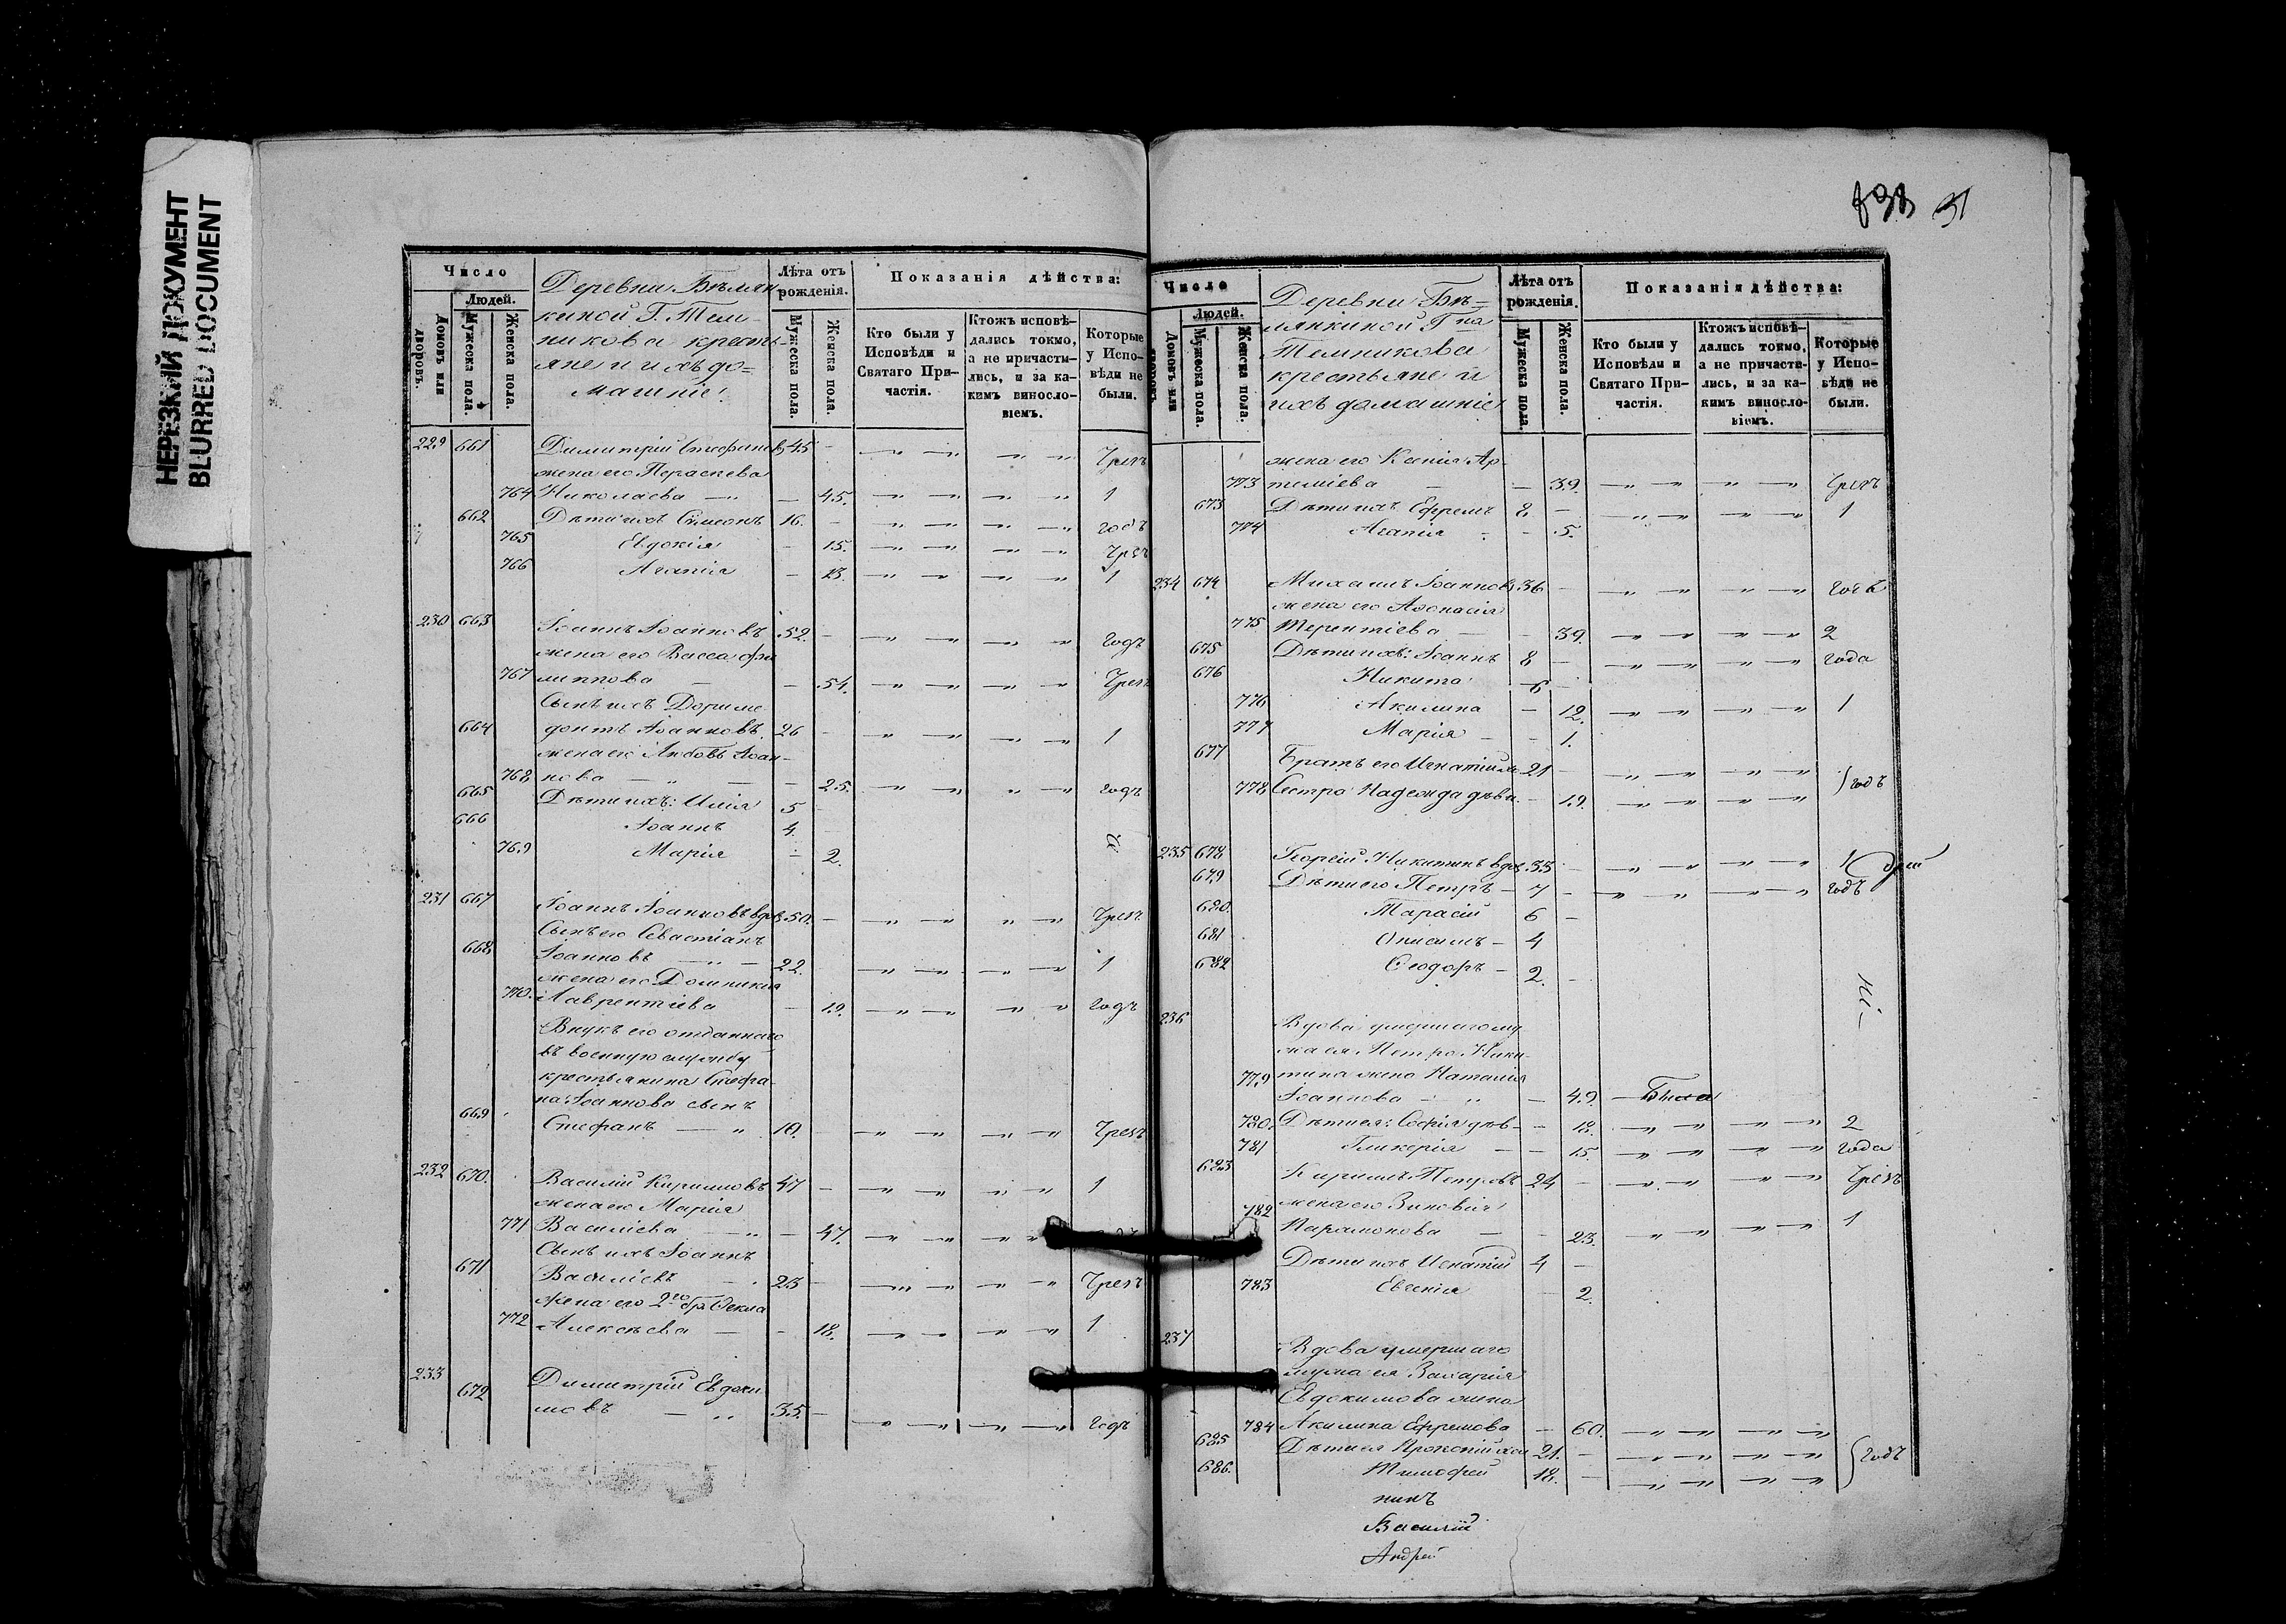 НЕРЕЗКИЙ ДОКУМЕНТ
BLURRED DOCUMENT
Число
Людей.
Домовъ или дворовъ.
Мужеска пола.
Женска пола.
Деревни Бѣмян-
киной Г. Тем-
никова кресть-
яне и ихъ до=
машніе
Лѣта отъ рожденія.
Мужеска пола.
Женска пола.
Показанія дѣйства:
Кто были у Исповѣди и Святаго При-частія.
Ктожъ исповѣ-дались токмо, а не причасти-лись, и за ка-кимъ виносло-віемъ.
Которые у Испо-вѣди не были.
229 661 Димитрій Стефановъ 45 -
жена его Параскева Чрезъ
764 Николаева - 45. 1
662 Дѣти ихъ Симеонъ 16. - годъ
765 Евдокія - 15. Чрезъ
766 Агапія - 13. 1
230 663 Іоаннъ Іоанновъ 52. - годъ
жена его Васса Фи
767 липпова - 54. Чрезъ
Сынъ ихъ Дориме
664 донтъ Іоанновъ. 26 - 1
жена его Любовь Іоан-
768 нова - 25. годъ
665 Дѣти ихъ: Илія 5 -
666 Іоаннъ 4.
769 Марія - 2.
231 667 Іоаннъ Іоанновъ вдов 50. - Чрезъ
Сынъ его Севастіанъ
668 Іоанновъ - 22. 1
жена его Домникія
770. Лаврентіева - 19. годъ
Внукъ его отданнаго
въ военную службу
крестьянина Стефа-
на Іоаннова сынъ
669 Стефанъ - 10. Чрезъ
232 670. Василій Кирилловъ 47 - 1
жена его Марія
771 Василіева - 47.
Сынъ ихъ Іоаннъ
671 Василіевъ 23 - Чрезъ
жена его 2го бр. Ѳекла
772 Алексѣева - 18. 1
233
672 Димитрій Евдоки
мовъ - 35. - годъ
31
Число
Людей.
Домовъ или дворовъ.
Мужеска пола.
Женска пола.
Деревни Бѣ=
мянкиной Гна
Темникова
крестьяне и
ихъ домашніе
Лѣта отъ рожденія.
Мужеска пола.
Женска пола.
Показанія дѣйства:
Кто были у Исповѣди и Святаго При-частія.
Ктожъ исповѣ-дались токмо, а не причасти-лись, и за ка-кимъ виносло-віемъ.
Которые у Испо-вѣди не были.
жена его Ксенія Ар-
773 теміева - 39. Чрезъ
673 Дѣти ихъ Ефремъ 8 - 1
774 Агапія - 5.
234 674 Михаилъ Іоанновъ 36 - годъ
жена его Афанасія
775 Терентіева - 39. 2
675 Дѣти ихъ: Іоаннъ 8 - года
676 Никита 6 -
776 Акилина - 12. 1
777 Марія - 1.
677 Братъ его Игнатій 21 -
778 Сестра Надежда дѣви. - 19. годъ
235 678 Георгій Никитинъ вдов 35 - 1
679 Дѣти его Петръ - 7 - годъ
680. Тарасій 6 -
681 Онисимъ - 4
682 Ѳеодоръ - 2. -
236 Вдова умершаго му
жа ея Петра Ники-
779 тина жена Наталія
Іоаннова - 49. - Была
780. Дѣти ея: Софія дѣв - 18. 2
781 Гликерія - 15. года
683 Кириллъ Петровъ 24 - Чрезъ
жена его Зиновія
782 Парамонова - 23. 1
Дѣти ихъ Игнатій 4 -
783 Евгенія - 2.
237
Вдова умершаго
мужа ея Захарія
Евдокимова жена
784 Акилина Ефремова - 60.
685 Дѣти ея Прокопій хол 21. - годъ
686. Тимофей 18. -
Василій
Андрей